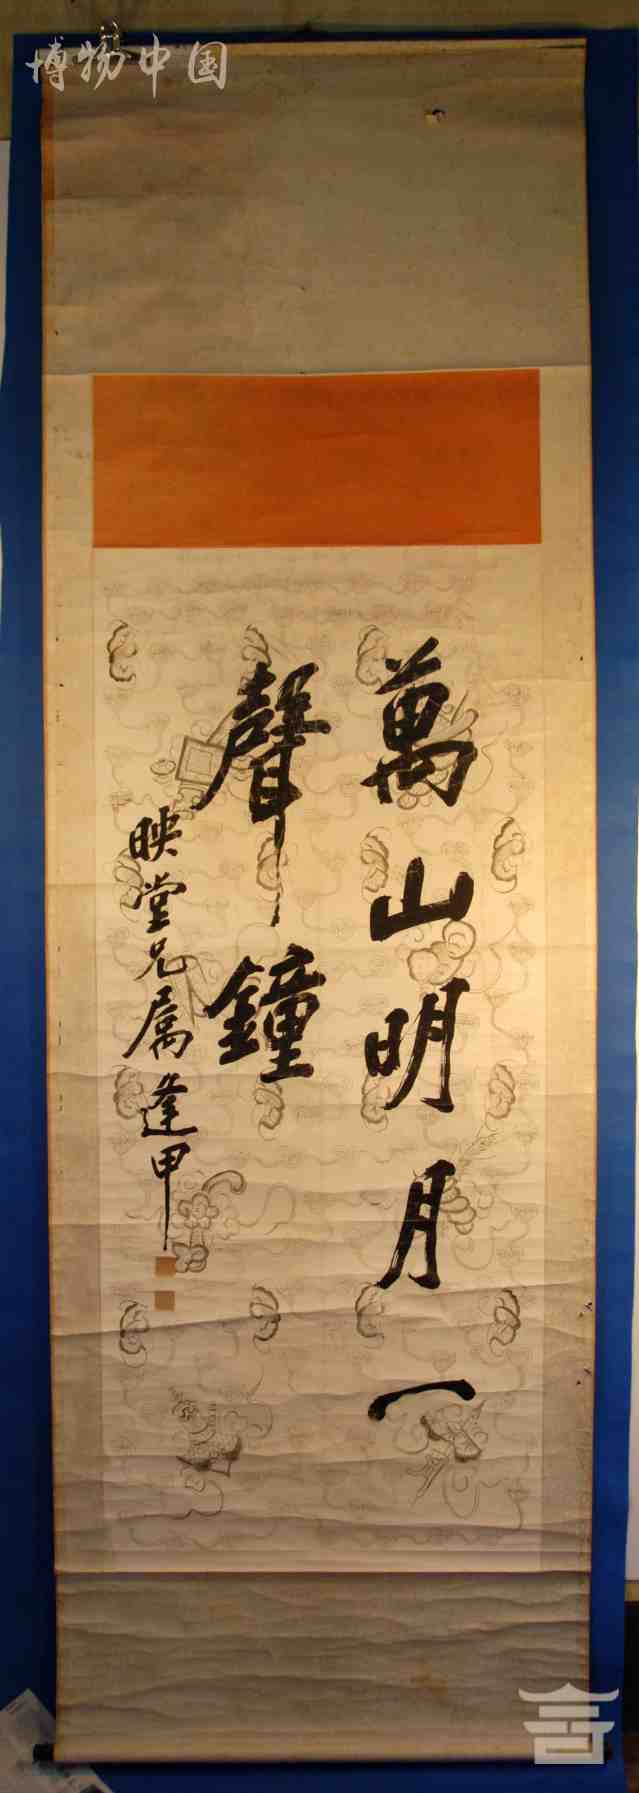 博物中国
萬山明月一
聲鐘
映堂兄属逢甲